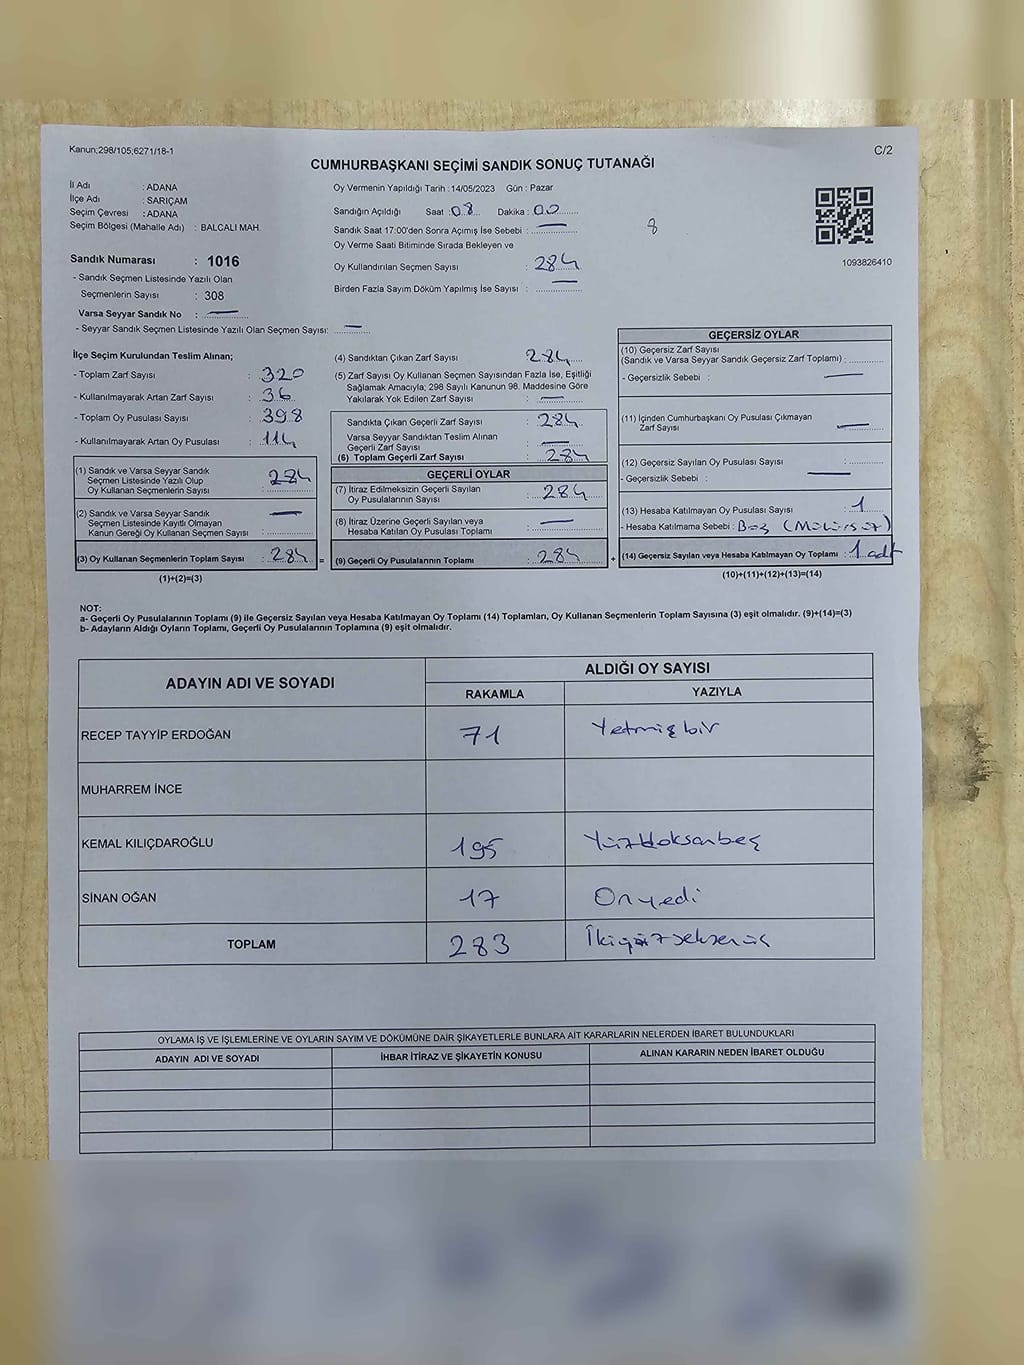 Kanun;298/105;6271/18-1
C/2
CUMHURBAŞKANI SEÇİMİ SANDIK SONUÇ TUTANAĞI
İl Adı : ADANA
İlçe Adı : SARIÇAM
Seçim Çevresi : ADANA
Seçim Bölgesi (Mahalle Adı) : BALCALI MAH.
Sandık Numarası : 1016
- Sandık Seçmen Listesinde Yazılı Olan
Seçmenlerin Sayısı : 308
Varsa Seyyar Sandık No : —
- Seyyar Sandık Seçmen Listesinde Yazılı Olan Seçmen Sayısı: —
Oy Vermenin Yapıldığı Tarih : 14/05/2023 Gün : Pazar
Sandığın Açıldığı Saat : 08 Dakika : 00
Sandık Saat 17:00'den Sonra Açımış İse Sebebi : —
Oy Verme Saati Bitiminde Sırada Bekleyen ve
Oy Kullandırılan Seçmen Sayısı : 284
Birden Fazla Sayım Döküm Yapılmış İse Sayısı : —
8
1093826410
İlçe Seçim Kurulundan Teslim Alınan;
- Toplam Zarf Sayısı : 320
- Kullanılmayarak Artan Zarf Sayısı : 36
- Toplam Oy Pusulası Sayısı : 398
- Kullanılmayarak Artan Oy Pusulası : 114
(1) Sandık ve Varsa Seyyar Sandık
Seçmen Listesinde Yazılı Olup
Oy Kullanan Seçmenlerin Sayısı : 284
(2) Sandık ve Varsa Seyyar Sandık
Seçmen Listesinde Kayıtlı Olmayan
Kanun Gereği Oy Kullanan Seçmen Sayısı : —
(3) Oy Kullanan Seçmenlerin Toplam Sayısı : 284 =
(1)+(2)=(3)
(4) Sandıktan Çıkan Zarf Sayısı : 284
(5) Zarf Sayısı Oy Kullanan Seçmen Sayısından Fazla İse, Eşitliği
Sağlamak Amacıyla; 298 Sayılı Kanunun 98. Maddesine Göre
Yakılarak Yok Edilen Zarf Sayısı : —
Sandıkta Çıkan Geçerli Zarf Sayısı : 284
Varsa Seyyar Sandıktan Teslim Alınan
Geçerli Zarf Sayısı : —
(6) Toplam Geçerli Zarf Sayısı : 284
GEÇERLİ OYLAR
(7) İtiraz Edilmeksizin Geçerli Sayılan
Oy Pusulalarının Sayısı : 284
(8) İtiraz Üzerine Geçerli Sayılan veya
Hesaba Katılan Oy Pusulası Toplamı : —
(9) Geçerli Oy Pusulalarının Toplamı : 284 +
GEÇERSİZ OYLAR
(10) Geçersiz Zarf Sayısı
(Sandık ve Varsa Seyyar Sandık Geçersiz Zarf Toplamı) :
- Geçersizlik Sebebi : —
(11) İçinden Cumhurbaşkanı Oy Pusulası Çıkmayan
Zarf Sayısı : —
(12) Geçersiz Sayılan Oy Pusulası Sayısı :
- Geçersizlik Sebebi : —
(13) Hesaba Katılmayan Oy Pusulası Sayısı : 1
- Hesaba Katılmama Sebebi : Boş (Mühürsüz)
(14) Geçersiz Sayılan veya Hesaba Katılmayan Oy Toplamı : 1 adt
(10)+(11)+(12)+(13)=(14)
NOT:
a- Geçerli Oy Pusulalarının Toplamı (9) ile Geçersiz Sayılan veya Hesaba Katılmayan Oy Toplamı (14) Toplamları, Oy Kullanan Seçmenlerin Toplam Sayısına (3) eşit olmalıdır. (9)+(14)=(3)
b- Adayların Aldığı Oyların Toplamı, Geçerli Oy Pusulalarının Toplamına (9) eşit olmalıdır.
ADAYIN ADI VE SOYADI
ALDIĞI OY SAYISI
RAKAMLA YAZIYLA
RECEP TAYYİP ERDOĞAN 71 Yetmişbir
MUHARREM İNCE
KEMAL KILIÇDAROĞLU 195 Yüzdoksanbeş
SİNAN OĞAN 17 Onyedi
TOPLAM 283 İkiyüzseksenüç
OYLAMA İŞ VE İŞLEMLERİNE VE OYLARIN SAYIM VE DÖKÜMÜNE DAİR ŞİKAYETLERLE BUNLARA AİT KARARLARIN NELERDEN İBARET BULUNDUKLARI
ADAYIN ADI VE SOYADI İHBAR İTİRAZ VE ŞİKAYETİN KONUSU ALINAN KARARIN NEDEN İBARET OLDUĞU